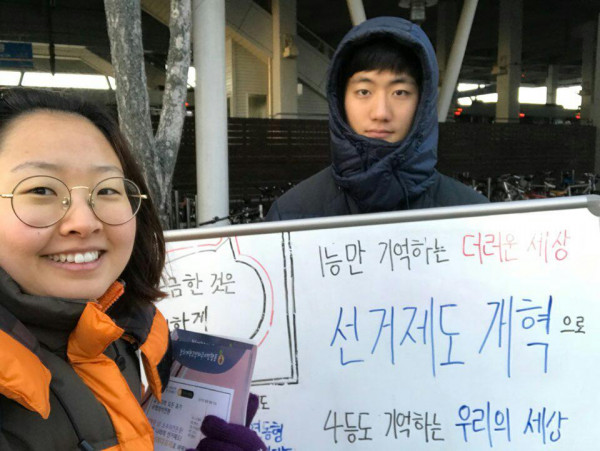 1등만 기억하는 더러운 세상
선거제도 개혁으로
4등도 기억하는 우리의 세상
금한 것은
하게